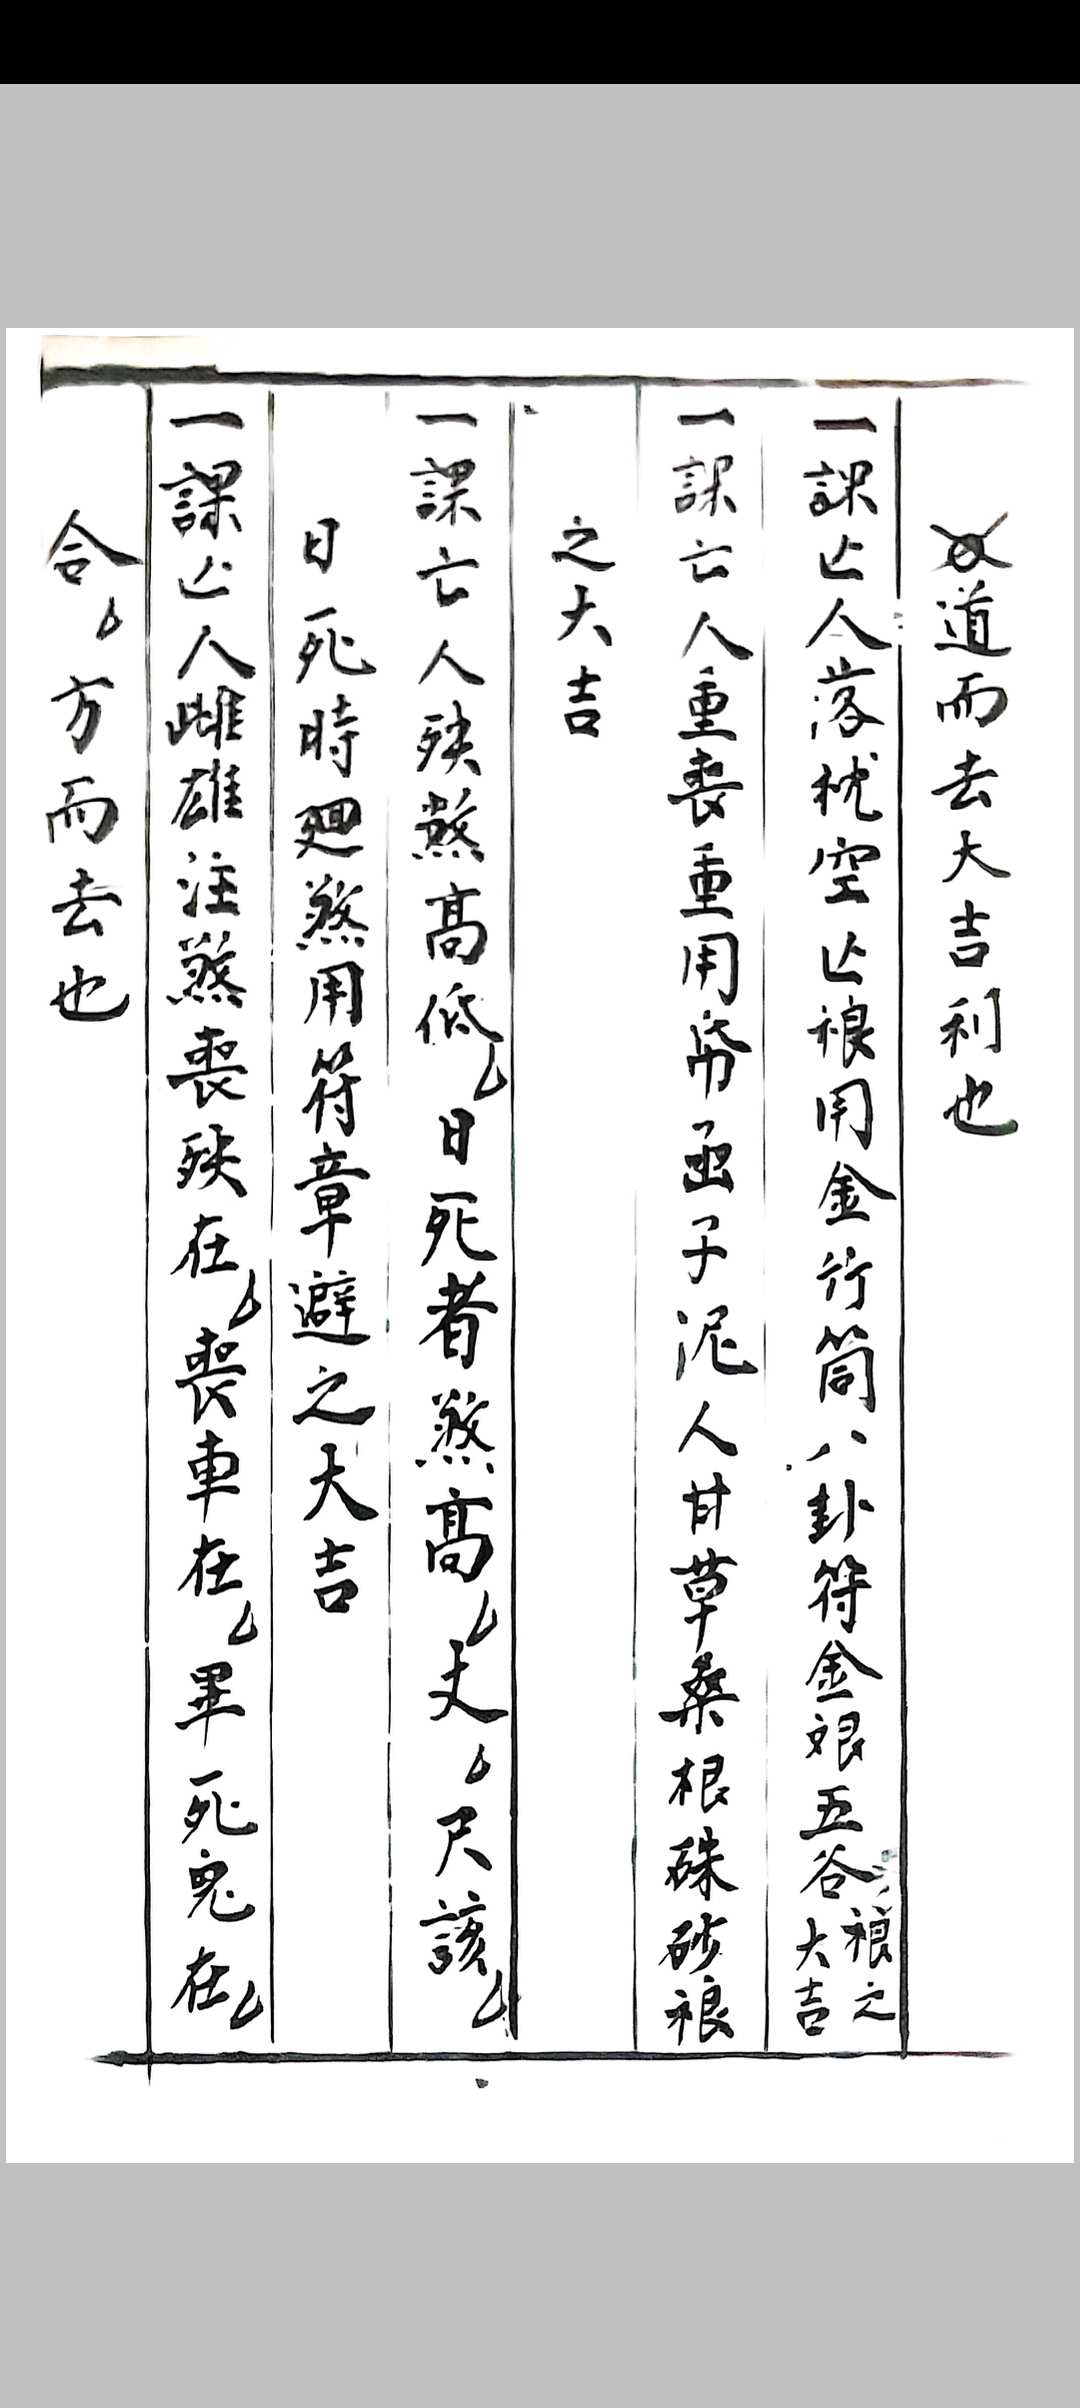 道而去大吉利也
一課亡人落枕空亡禳用金竹筒八卦符金銀五谷禳之大吉
一課亡人重喪重用帋函子泥人甘草桑根硃砂禳
之大吉
一課亡人殃煞高低 日死者煞高 丈 尺該
日死時廻煞用符章避之大吉
一課亡人雌雄注煞喪殃在 喪車在 畢死鬼在
合 方而去也